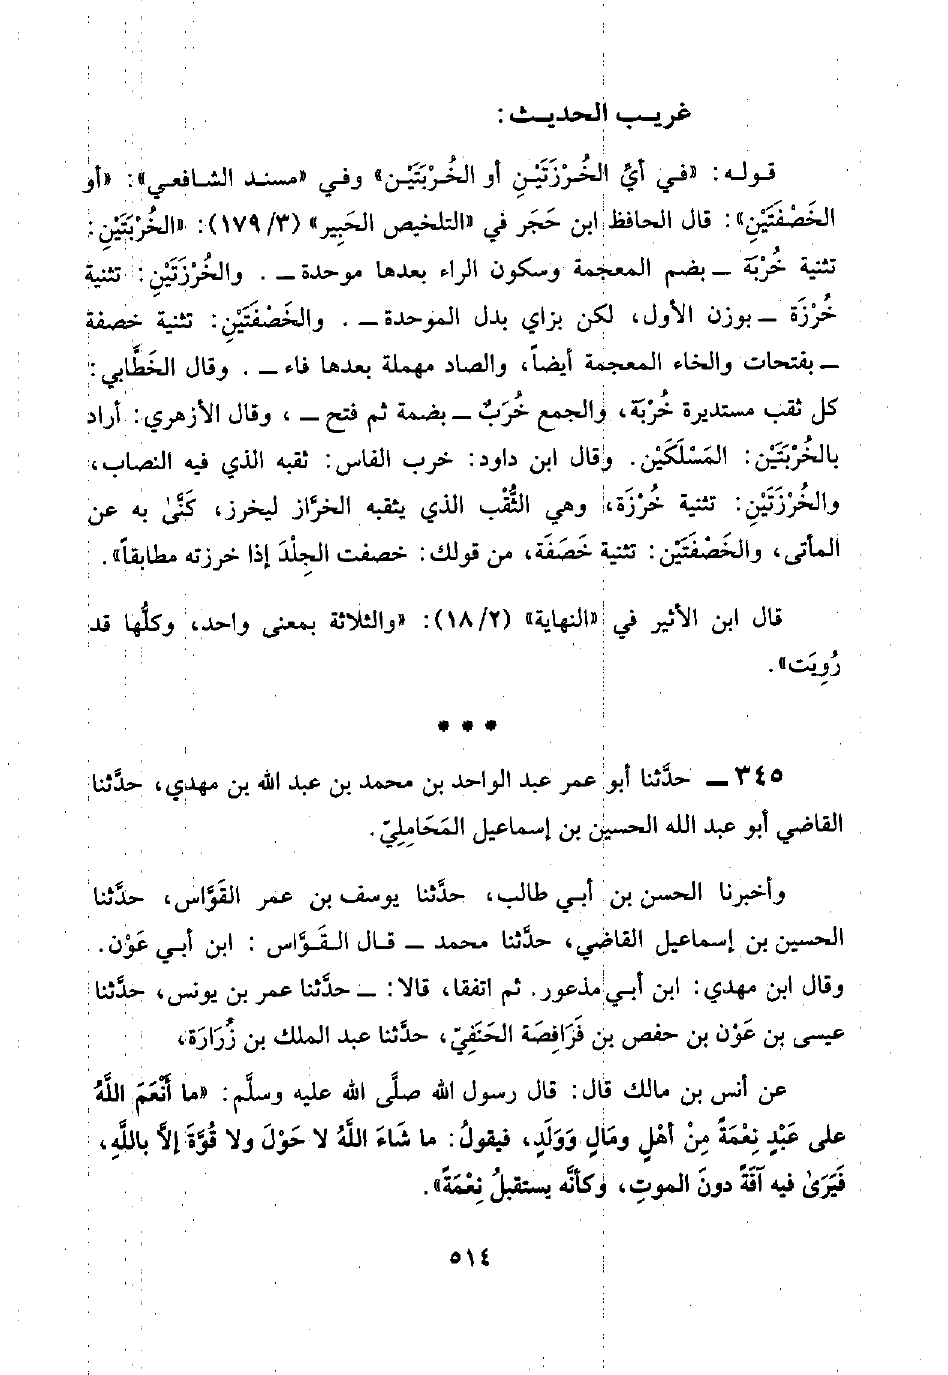 غريب الحديث:
قوله: «في أيِّ الخُرْزَتَيْنِ أو الخُرْبَتَيْن» وفي «مسند الشافعي»: «أو
الخَصْفَتَيْنِ»: قال الحافظ ابن حَجَر في «التلخيص الحَبِير» (٣/ ١٧٩): «الخُرْبَتَيْنِ:
تثنية خُرْبَة ــ بضم المعجمة وسكون الراء بعدها موحدة ــ . والخُرْزَتَيْنِ: تثنية
خُرْزَة ــ بوزن الأول، لكن بزاي بدل الموحدة ــ . والخَصْفَتَيْنِ: تثنية خصفة
ــ بفتحات والخاء المعجمة أيضاً، والصاد مهملة بعدها فاء ــ . وقال الخَطَّابي:
كل ثقب مستديرة خُرْبَة، والجمع خُرَبٌ ــ بضمة ثم فتح ــ ، وقال الأزهري: أراد
بالخُرْبَتَيْن: المَسْلَكَيْن. وقال ابن داود: خرب الفاس: ثقبه الذي فيه النصاب،
والخُرْزَتَيْنِ: تثنية خُرْزَة، وهي الثُّقْب الذي يثقبه الخرَّاز ليخرز، كَنَّىٰ به عن
المأتى، والخَصْفَتَيْن: تثنية خَصَفَة، من قولك: خصفت الجِلْدَ إذا خرزته مطابقاً».
قال ابن الأثير في «النهاية» (١٨/٢): «والثلاثة بمعنى واحد، وكلُّها قد
رُوِيَت».
* * *
٣٤٥ ــ حدَّثنا أبو عمر عبد الواحد بن محمد بن عبد الله بن مهدي، حدَّثنا
القاضي أبو عبد الله الحسين بن إسماعيل المَحَامِلِيّ.
وأخبرنا الحسن بن أبي طالب، حدَّثنا يوسف بن عمر القَوَّاس، حدَّثنا
الحسين بن إسماعيل القاضي، حدَّثنا محمد ــ قال القَوَّاس : ابن أبي عَوْن.
وقال ابن مهدي: ابن أبي مذعور. ثم اتفقا، قالا: ــ حدَّثنا عمر بن يونس، حدَّثنا
عيسى بن عَوْن بن حفص بن فَرَافِصَة الحَنَفِيّ، حدَّثنا عبد الملك بن زُرَارَة،
عن أنس بن مالك قال: قال رسول الله صلَّى الله عليه وسلَّم: «ما أَنْعَمَ اللَّهُ
على عَبْدٍ نِعْمَةً مِنْ أهْلٍ ومَالٍ وَوَلَدٍ، فيقولُ: ما شَاءَ اللَّهُ لا حَوْلَ ولا قُوَّةَ إلاَّ باللَّهِ،
فَيَرَىٰ فيه آفَةً دونَ الموتِ، وكأنَّه يستقبلُ نِعْمَةً».
٥١٤